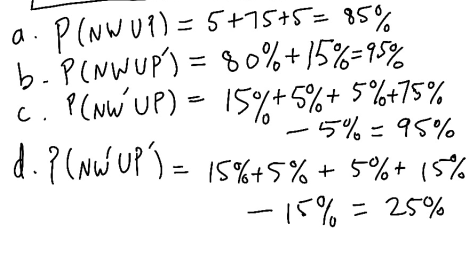 a. P(NW U P) = 5+75+5= 85%
b. P(NW U P') = 80%+15%=95%
c. P(NW' U P) = 15%+5%+ 5%+75%
- 5% = 95%
d. P(NW' U P') = 15%+5% + 5%+ 15%
- 15% = 25%